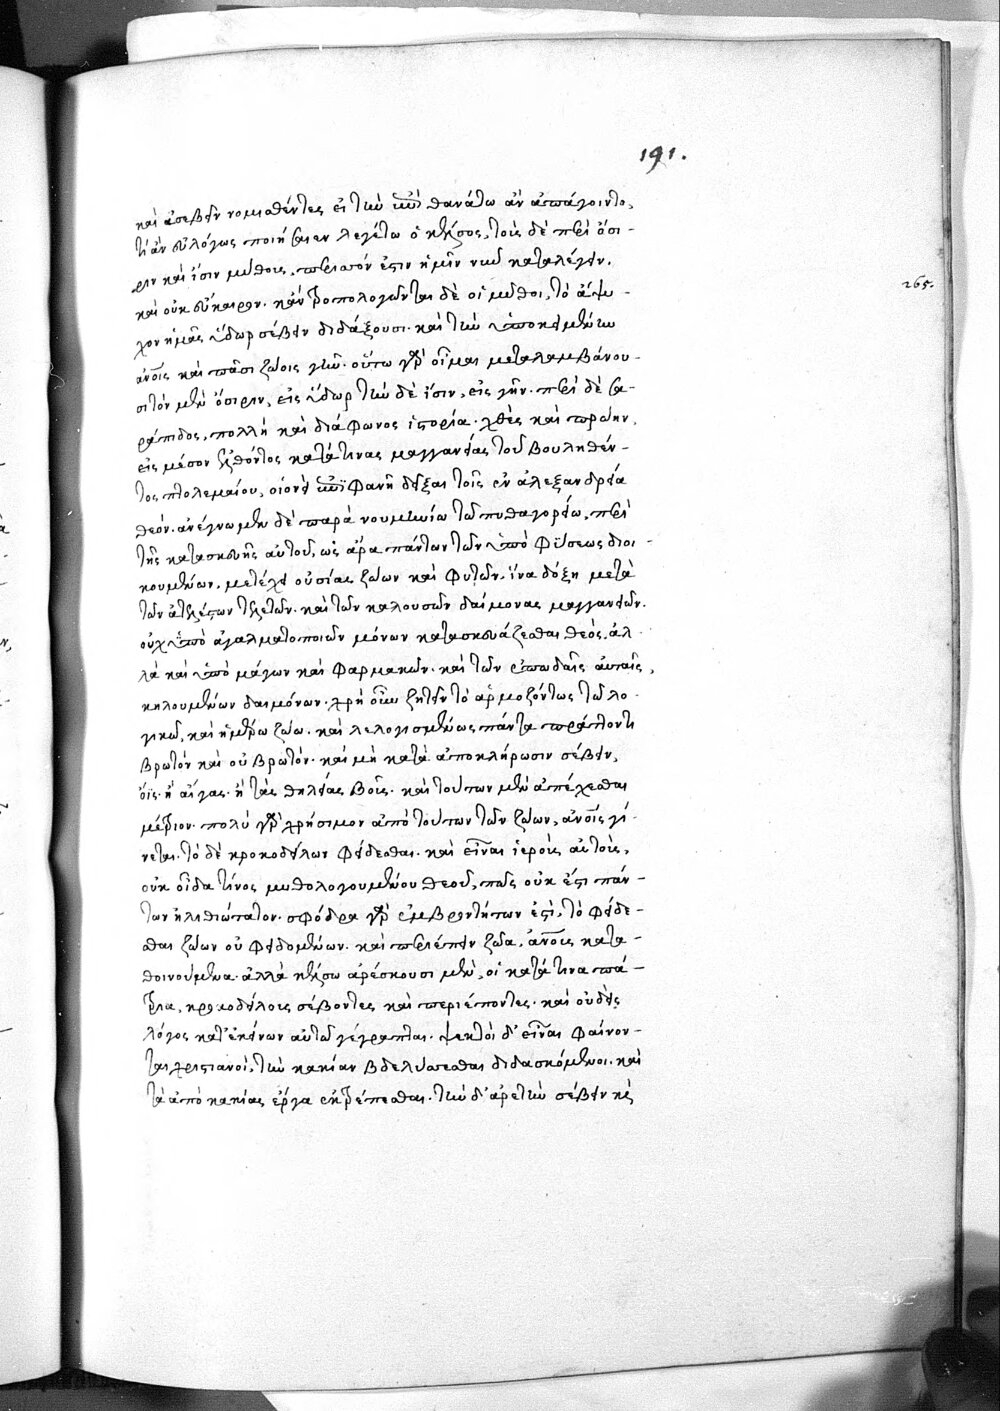 191.
265.
καὶ ἀσεβεῖν νομισθέντες εἰ τὴν ἐπὶ θανάτω ἂν ἀπάγοιντο,
τί ἂν εὐλόγως ποιήσαιεν λεγέτω ὁ κέλσος, τοὺς δὲ περὶ ὀσί-
ριν καὶ ἴσιν μύθους, περισσόν ἐστιν ἡμῖν νῦν καταλέγειν.
καὶ οὐκ εὔκαιρον. κἂν τροπολογῶνται δὲ οἱ μῦθοι, τὸ ἄψυ-
χον ἡμᾶς ὕδωρ σέβειν διδάξουσι. καὶ τὴν ὑποκειμένην
ἀνοις καὶ πᾶσι ζώοις γῆν. οὕτω γὰρ οἶμαι μεταλαμβάνου-
σι τὸν μὲν ὄσιριν, εἰς ὕδωρ τὴν δὲ ἴσιν, εἰς γῆν. περὶ δὲ σα-
ράπιδος, πολλὴ καὶ διάφωνος ἱστορία. χθὲς καὶ πρώην,
εἰς μέσον ἐλθόντος κατά τινας μαγγανείας τοῦ βουληθέν-
τος πτολεμαίου, οἱονεὶ ἐπιφανῆ δεῖξαι τοῖς ἐν ἀλεξανδρεία
θεόν. ἀνέγνωμεν δὲ παρὰ νουμηνίω τῶ πυθαγορείω, περὶ
τῆς κατασκευῆς αὐτοῦ, ὡς ἄρα πάντων τῶν ὑπὸ φύσεως διοι-
κουμένων, μετέχει οὐσίας ζώων καὶ φυτῶν. ἵνα δόξη μετὰ
τῶν ἀτελέστων τελετῶν. καὶ τῶν καλουσῶν δαίμονας μαγγανειῶν.
οὐχ ὑπὸ ἀγαλματοποιῶν μόνων κατασκευάζεσθαι θεός, ἀλ-
λὰ καὶ ὑπὸ μάγων καὶ φαρμακῶν. καὶ τῶν ἐπωδαῖς αὐταῖς,
κηλουμένων δαιμόνων. χρὴ οὖν ζητεῖν τὸ ἁρμοζόντως τῶ λο-
γικῶ, καὶ ἡμέρω ζώω. καὶ λελογισμένως πάντα πράττοντι
βρωτὸν καὶ οὐ βρωτόν. καὶ μὴ κατὰ ἀποκλήρωσιν σέβειν,
ὄϊς. ἢ αἶγας. ἢ τὰς θηλείας βοῦς. καὶ τούτων μὲν ἀπέχεσθαι
μέτριον. πολὺ γὰρ χρήσιμον ἀπὸ τούτων τῶν ζώων, ἀνοις γί-
νεται. τὸ δὲ κροκοδείλων φείδεσθαι. καὶ εἶναι ἱεροὺς αὐτοὺς,
οὐκ οἶδα τίνος μυθολογουμένου θεοῦ, πῶς οὐκ ἔστι πάν-
των ἠλιθιώτατον. σφόδρα γὰρ ἐμβροντήτων ἐστὶ, τὸ φείδε-
σθαι ζώων οὐ φειδομένων. καὶ περιέπειν ζῶα, ἀνοις κατα-
θοινούμενα. ἀλλὰ κέλσω ἀρέσκουσι μὲν, οἱ κατά τινα πά-
τρια, κροκοδείλους σέβοντες καὶ περιέποντες. καὶ οὐδεὶς
λόγος κατ' ἐκείνων αὐτῶ γέγραπται. ψεκτοὶ δ' εἶναι φαίνον-
ται χριστιανοὶ, τὴν κακίαν βδελύσσεσθαι διδασκόμενοι. καὶ
τὰ ἀπὸ κακίας ἔργα ἐκτρέπεσθαι. τὴν δ' ἀρετὴν σέβειν κὶ